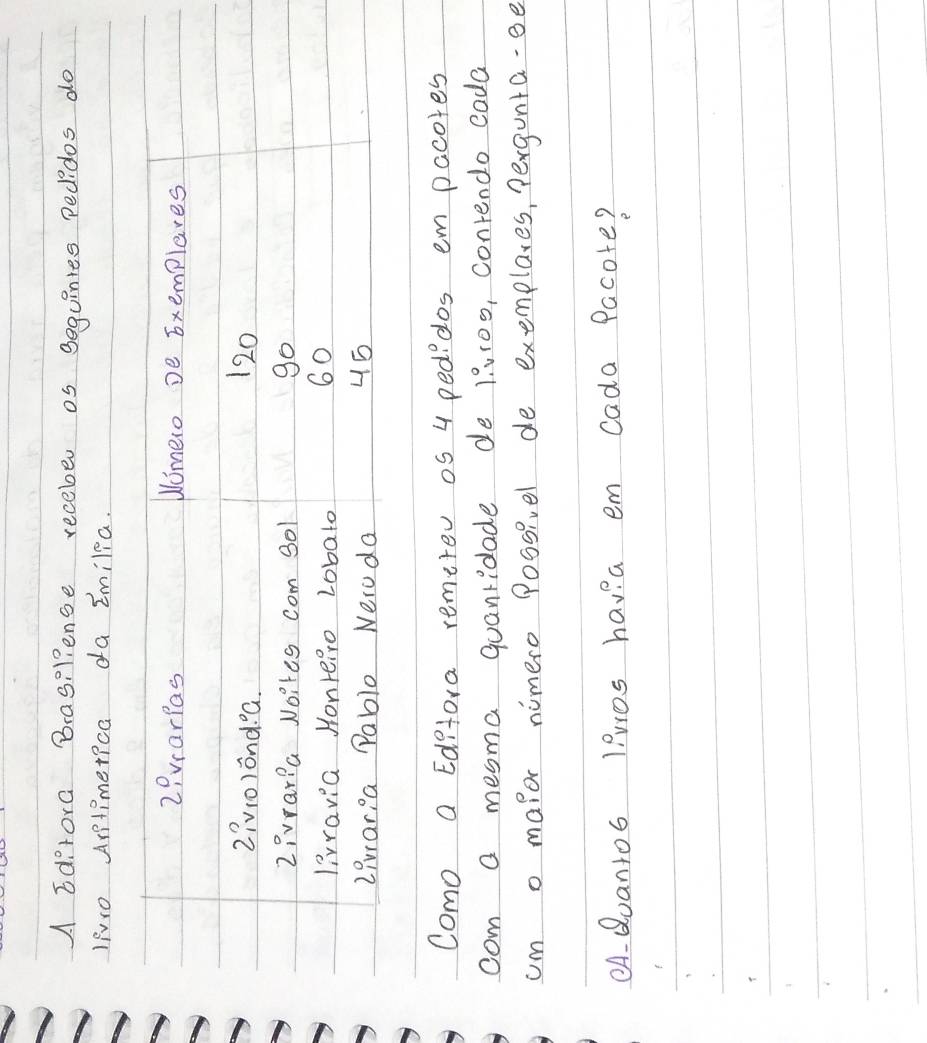 A Editora Brasiliense recebeu os seguintes pedidos do
livro Aritimetica da Emília.
Livrarias Número De Exemplares
Livrolândia. 120
Livraria Noites com Sol 90
livraria Monteiro Lobato 60
Livraria Pablo Neruda 45
Como a Editora remeteu os 4 pedidos em pacotes
com a mesma quantidade de livros, contendo cada
um o maior número Possivel de exemplares, Pergunta-se
A- Quantos livros havia em cada Pacote?